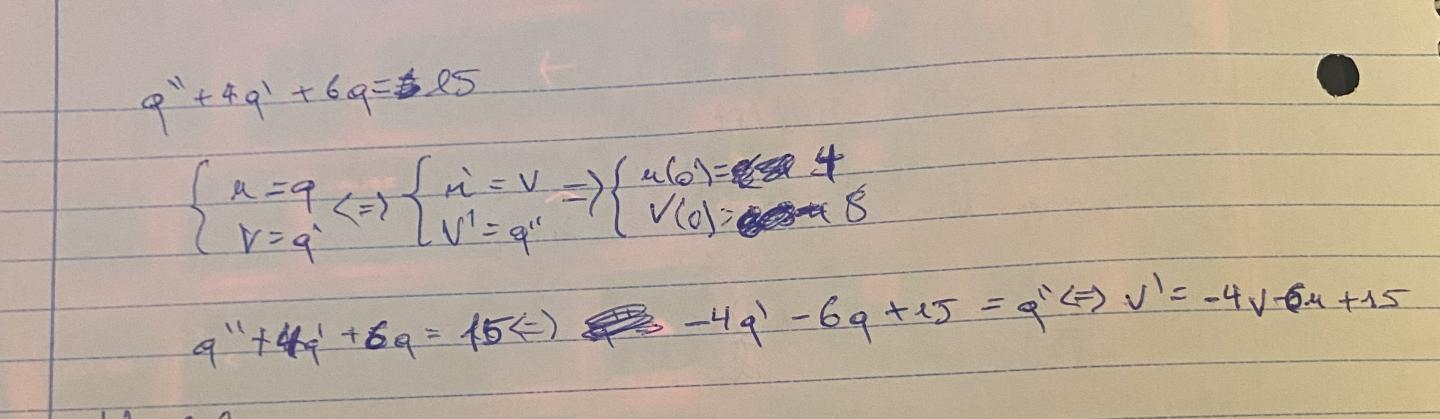 q'' + 4q' + 6q = 15
{ u = q <=> { u' = v => { u(0) = 4
{ v = q' { v' = q'' { v(0) = 8
q'' + 4q' + 6q = 15 <=> -4q' - 6q + 15 = q'' <=> v' = -4v - 6u + 15